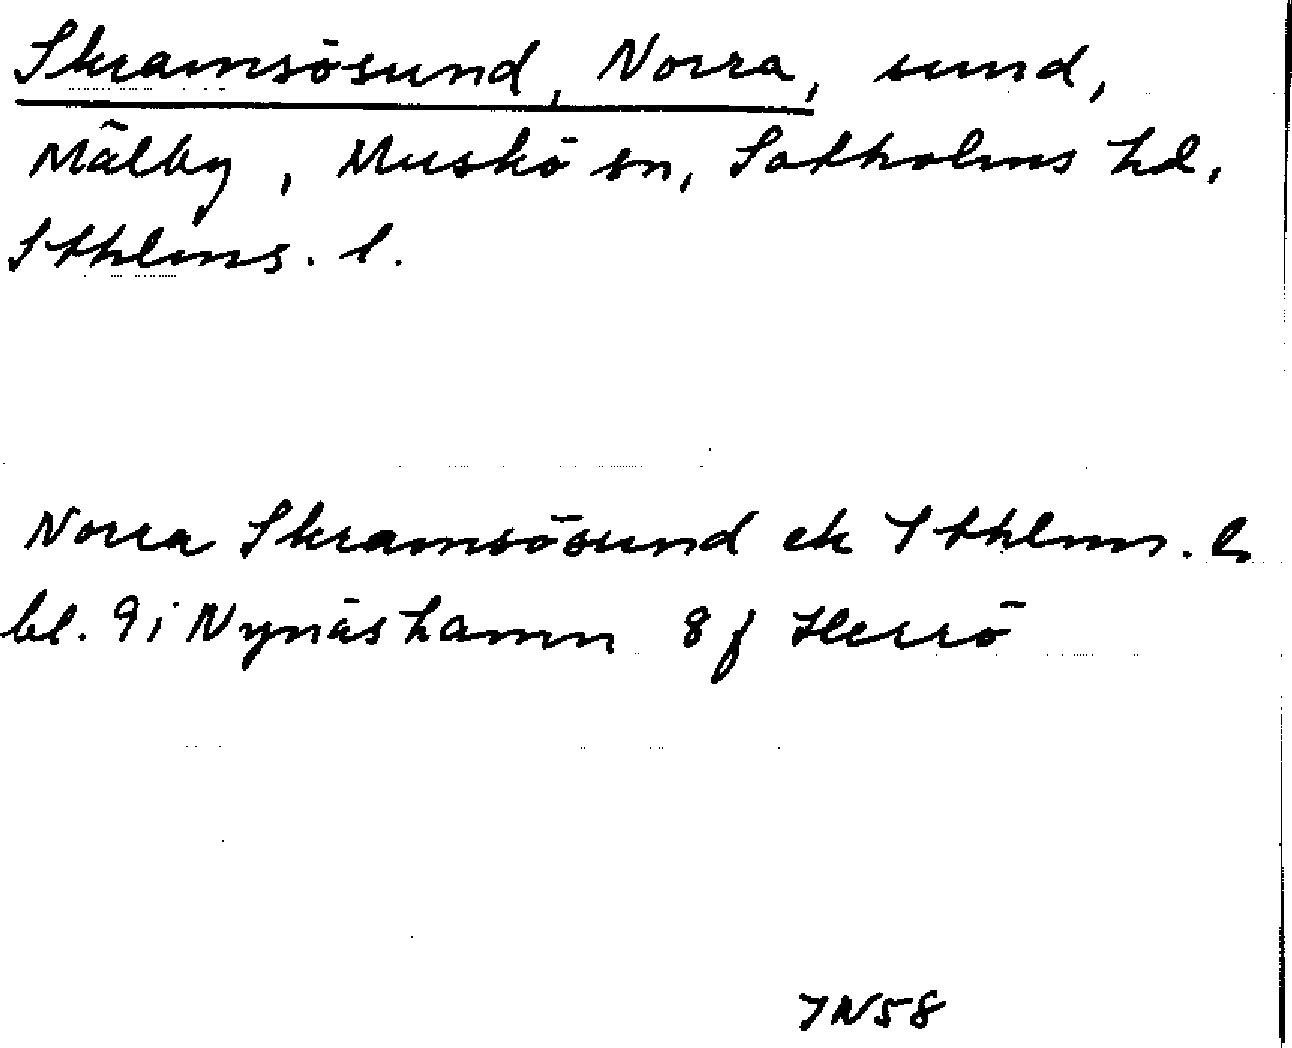 Skramsösund, Norra, sund,
Mälby, Muskö sn, Sotholms hd,
Sthlms. l.
Norra Skramsösund ek Sthlms. l.
bl. 9i Nynäshamn 8f Herrö
IN58